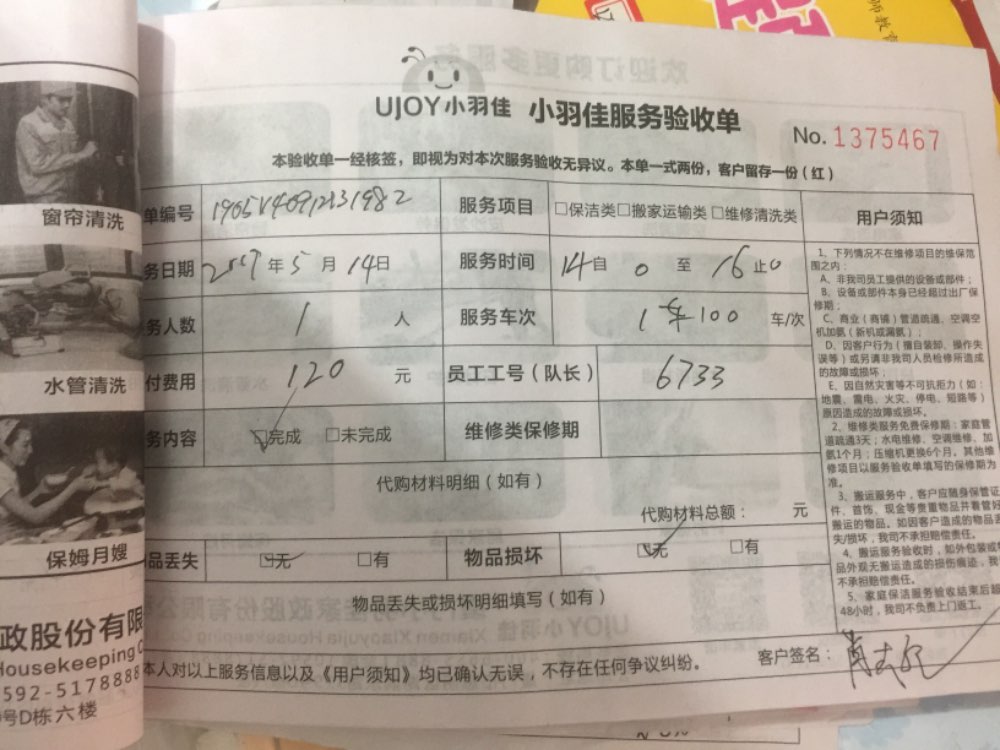 师教育
UJOY小羽佳 小羽佳服务验收单
No. 1375467
本验收单一经核签，即视为对本次服务验收无异议。本单一式两份，客户留存一份（红）
单编号 服务项目 □保洁类□搬家运输类□维修清洗类 用户须知
务日期 年 5 月 14日 服务时间 14自 0 至 16止0
务人数 1 人 服务车次 1车100 车/次
付费用 120 元 员工工号（队长） 6733
务内容 ☑完成 □未完成 维修类保修期
代购材料明细（如有）
代购材料总额： 元
品丢失 ☑无 □有 物品损坏 ☑无 □有
物品丢失或损坏明细填写（如有）
本人对以上服务信息以及《用户须知》均已确认无误，不存在任何争议纠纷。 客户签名：
1、下列情况不在维修项目的维保范
围之内：
A、非我司员工提供的设备或部件；
B、设备或部件本身已经超过出厂保
修期；
C、商业（商铺）管道疏通、空调空
机加氨（新机或漏氨）；
D、因客户行为（擅自装卸、操作失
误等）或另请非我司人员检修所造成
的故障或损坏；
E、因自然灾害等不可抗拒力（如：
地震、雷电、火灾、停电、短路等）
原因造成的故障或损坏。
2、维修类服务免费保修期：家庭管
道疏通3天；水电维修、空调维修、加
氨1个月；压缩机更换6个月。其他维
修项目以服务验收单填写的保修期为
准。
3、搬运服务中，客户应随身保管证
件、首饰、现金等贵重物品并看管好
搬运的物品。如因客户造成的物品丢
失/损坏，我司不承担赔偿责任。
4、搬运服务验收时，如外包装或物
品外观无搬运造成的损伤痕迹，我
不承担赔偿责任。
5、家庭保洁服务验收结束后超
48小时，我司不负责上门返工。
窗帘清洗
水管清洗
保姆月嫂
政股份有限
Housekeeping
592-5178888
号D栋六楼